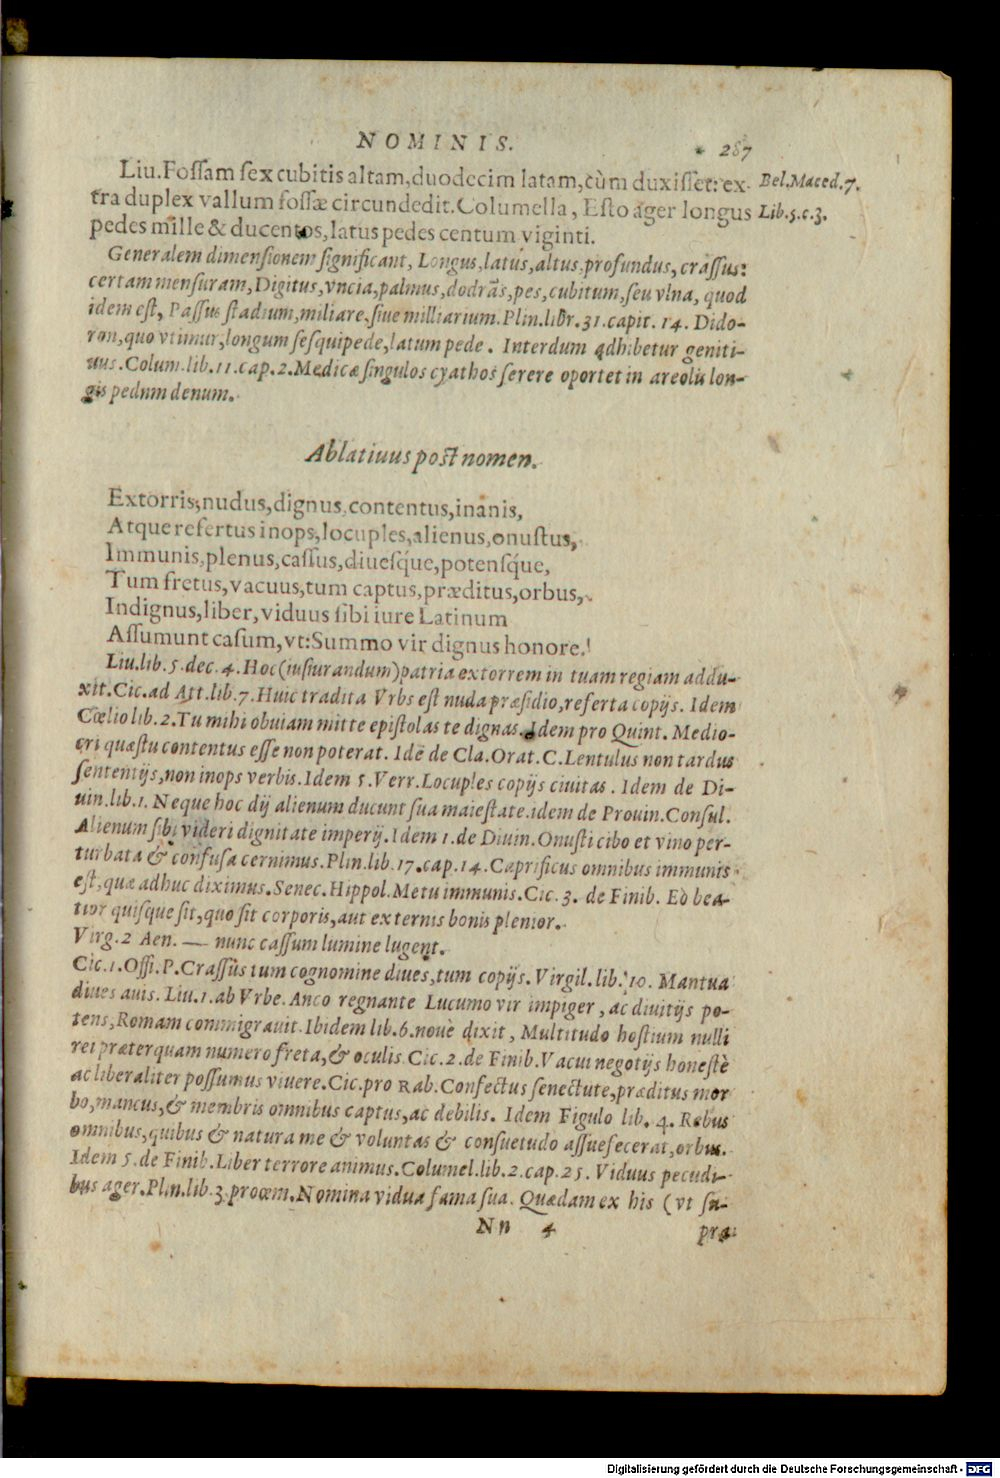 NOMINIS. 287
Liu. Fossam sex cubitis altam, duodecim latam, cùm duxisset: ex- Bel. Maced. 7.
tra duplex vallum fossæ circundedit. Columella, Esto ager longus Lib. 5. c. 3.
pedes mille & ducentos, latus pedes centum viginti.
Generalem dimensionem significant, Longus, latus, altus, profundus, crassus:
certam mensuram, Digitus, vncia, palmus, dodrãs, pes, cubitum, seu vlna, quod
idem est, Passus stadium, miliare, siue milliarium. Plin. libr. 31. capit. 14. Dido-
ron, quo vtimur, longum sesquipede, latum pede. Interdum adhibetur geniti-
uus. Colum. lib. 11. cap. 2. Medicæ singulos cyathos serere oportet in areolis lon-
gis pednm denum.
Ablatiuus post nomen.
Extorris, nudus, dignus, contentus, inanis,
Atque refertus inops, locuples, alienus, onustus,
Immunis, plenus, cassus, diuesq́ue, potensq́ue,
Tum fretus, vacuus, tum captus, præditus, orbus,
Indignus, liber, viduus sibi iure Latinum
Assumunt casum, vt: Summo vir dignus honore.
Liu. lib. 5. dec. 4. Hoc (iusiurandum) patria extorrem in tuam regiam addu-
xit. Cic. ad Att. lib. 7. Huic tradita Vrbs est nuda præsidio, referta copijs. Idem
Cœlio lib. 2. Tu mihi obuiam mitte epistolas te dignas. Idem pro Quint. Medio-
cri quæstu contentus esse non poterat. Idē de Cla. Orat. C. Lentulus non tardus
sententijs, non inops verbis. Idem 5. Verr. Locuples copijs ciuitas. Idem de Di-
uin. lib. 1. Neque hoc dij alienum ducunt sua maiestate. idem de Prouin. Consul.
Alienum sibi videri dignitate imperij. Idem 1. de Diuin. Onusti cibo et vino per-
turbata & confusa cernimus. Plin. lib. 17. cap. 14. Caprificus omnibus immunis
est, quæ adhuc diximus. Senec. Hippol. Metu immunis. Cic. 3. de Finib. Eò bea-
tior quisque sit, quo sit corporis, aut externis bonis plenior.
Virg. 2 Aen. — nunc cassum lumine lugent.
Cic. 1. Offi. P. Crassus tum cognomine diues, tum copijs. Virgil. lib. 10. Mantua
diues auis. Liu. 1. ab Vrbe. Anco regnante Lucumo vir impiger, ac diuitijs po-
tens, Romam commigrauit. Ibidem lib. 6. nouè dixit, Multitudo hostium nulli
rei præterquam numero freta, & oculis. Cic. 2. de Finib. Vacui negotijs honestè
ac liberaliter possumus viuere. Cic. pro Rab. Confectus senectute, præditus mor
bo, mancus, & membris omnibus captus, ac debilis. Idem Figulo lib. 4. Rebus
omnibus, quibus & natura me & voluntas & consuetudo assuefecerat, orbus.
Idem 5. de Finib. Liber terrore animus. Columel. lib. 2. cap. 25. Viduus pecudi-
bus ager. Plin. lib. 3. proœm. Nomina vidua fama sua. Quædam ex his (vt su-
Nn 4 pra
Digitalisierung gefördert durch die Deutsche Forschungsgemeinschaft - DFG